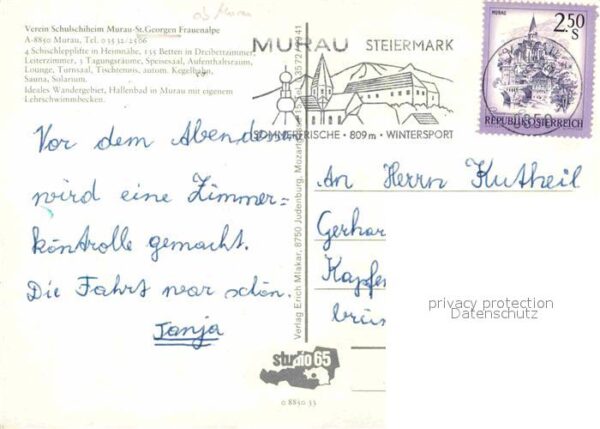 ob Murau
Verein Schulschiheim Murau-St.Georgen Frauenalpe
A-8850 Murau, Tel. 03532/2586
4 Schischlepplifte in Heimnähe, 155 Betten in Dreibettzimmer,
Leiterzimmer, 3 Tagungsräume, Speisesaal, Aufenthaltsraum,
Lounge, Turnsaal, Tischtennis, autom. Kegelbahn,
Sauna, Solarium.
Ideales Wandergebiet, Hallenbad in Murau mit eigenem
Lehrschwimmbecken.
MURAU STEIERMARK
SOMMERFRISCHE · 809m · WINTERSPORT
MURAU
2.50
S
REPUBLIK ÖSTERREICH
Vor dem Abendessen
wird eine Zimmer=
kontrolle gemacht.
Die Fahrt war schön.
Tanja
Verlag Erich Mlakar, 8750 Judenburg, Mozart
An Herrn Kutheil
Gerhar
Kapfen
privacy protection
Datenschutz
studio 65
0 8850 55